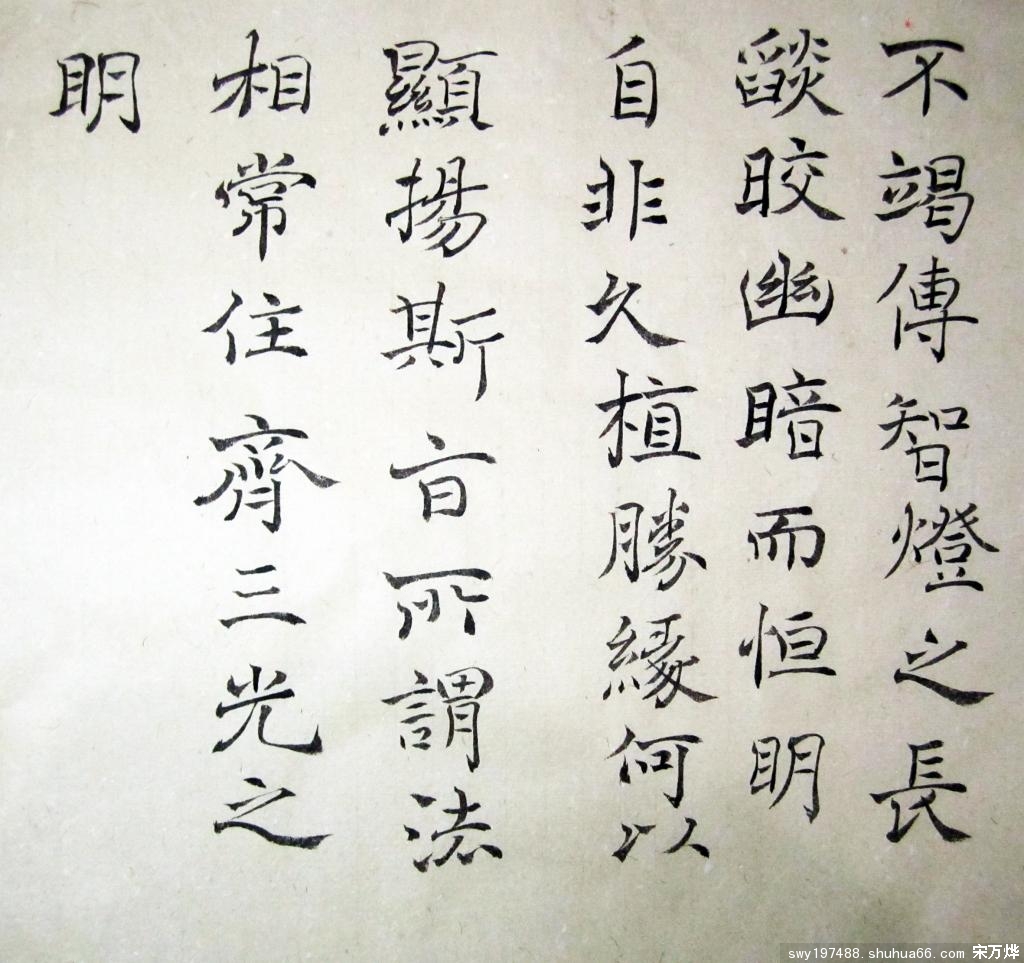 不竭傳智燈之長
燄皎幽暗而恒明
自非久植勝緣何以
顯揚斯旨所謂法
相常住齊三光之
明
swy197488.shuhua66.com 宋万烨